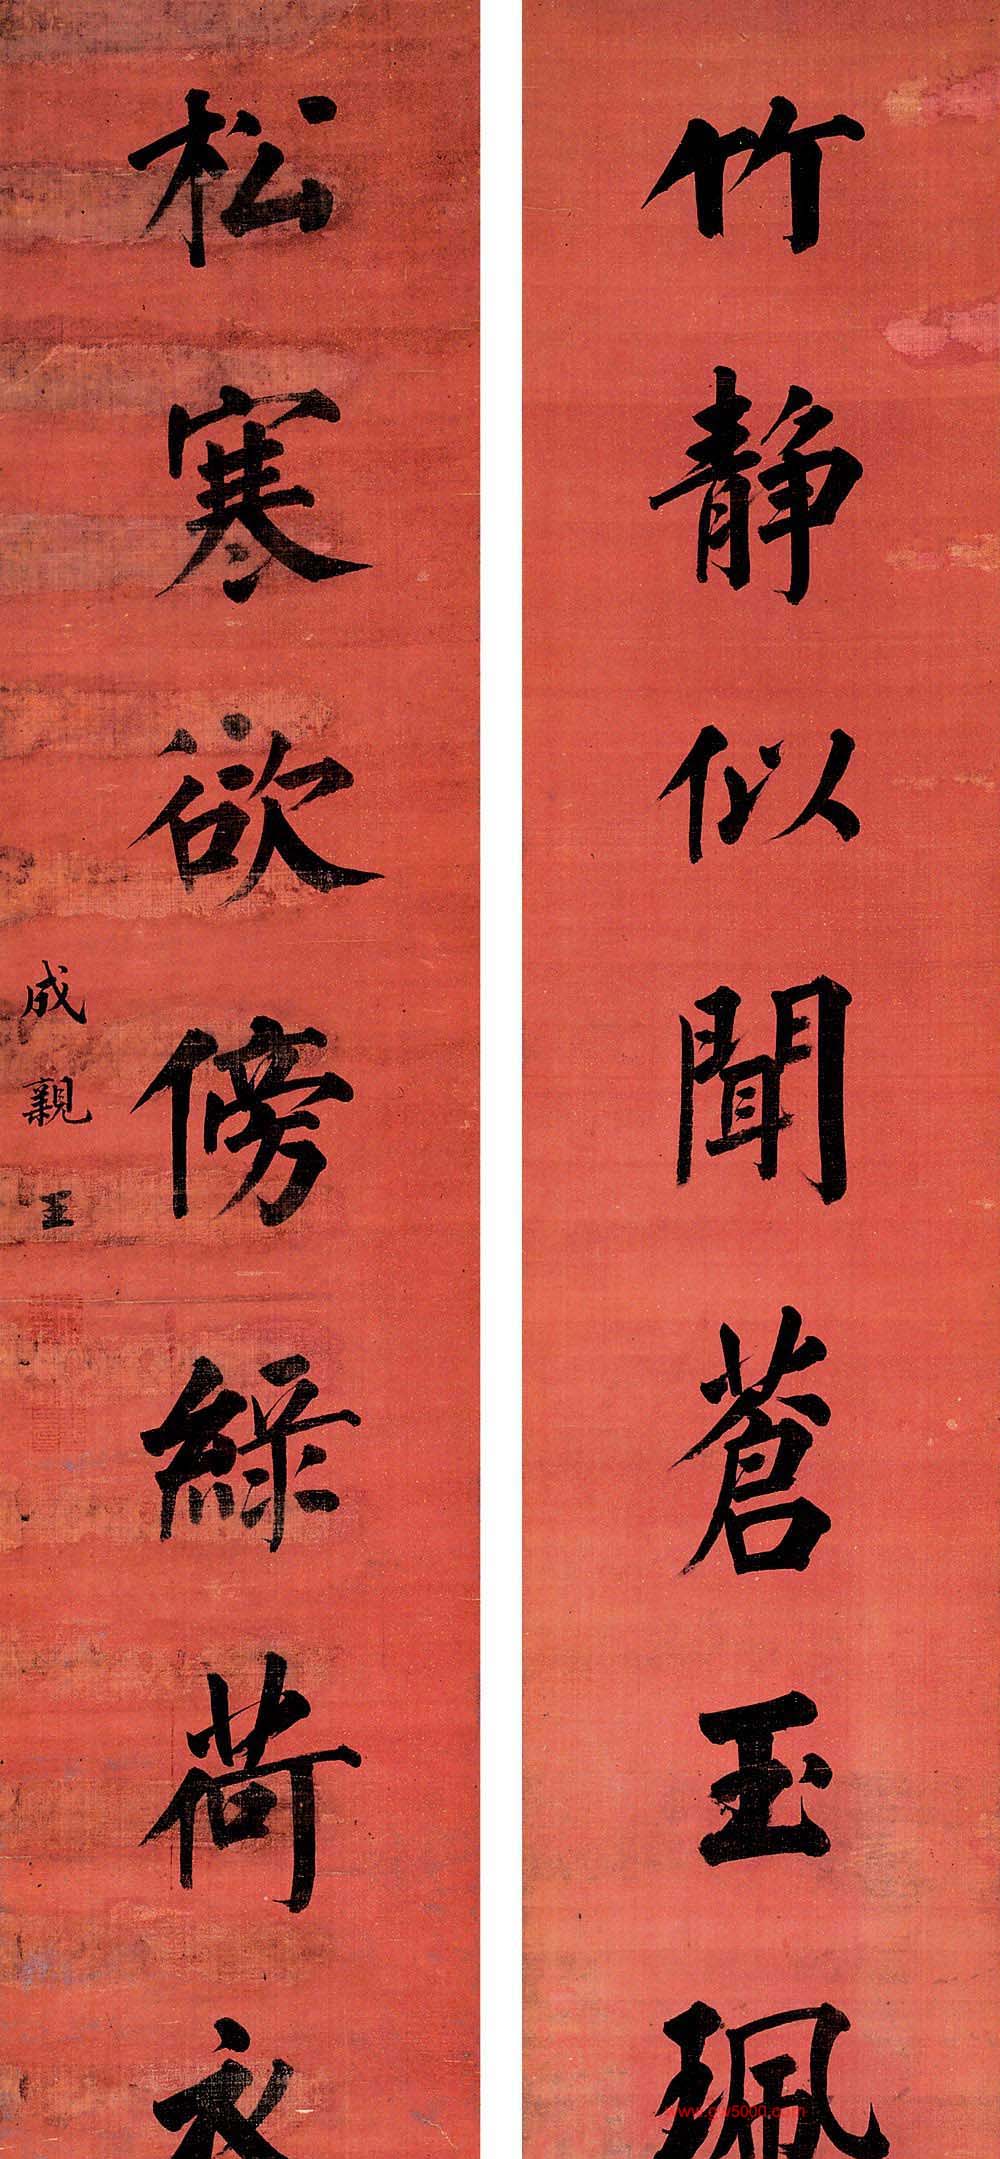 竹靜似聞蒼玉珮
松寒欲傍綠荷衣
成親王
www.cw5000.com